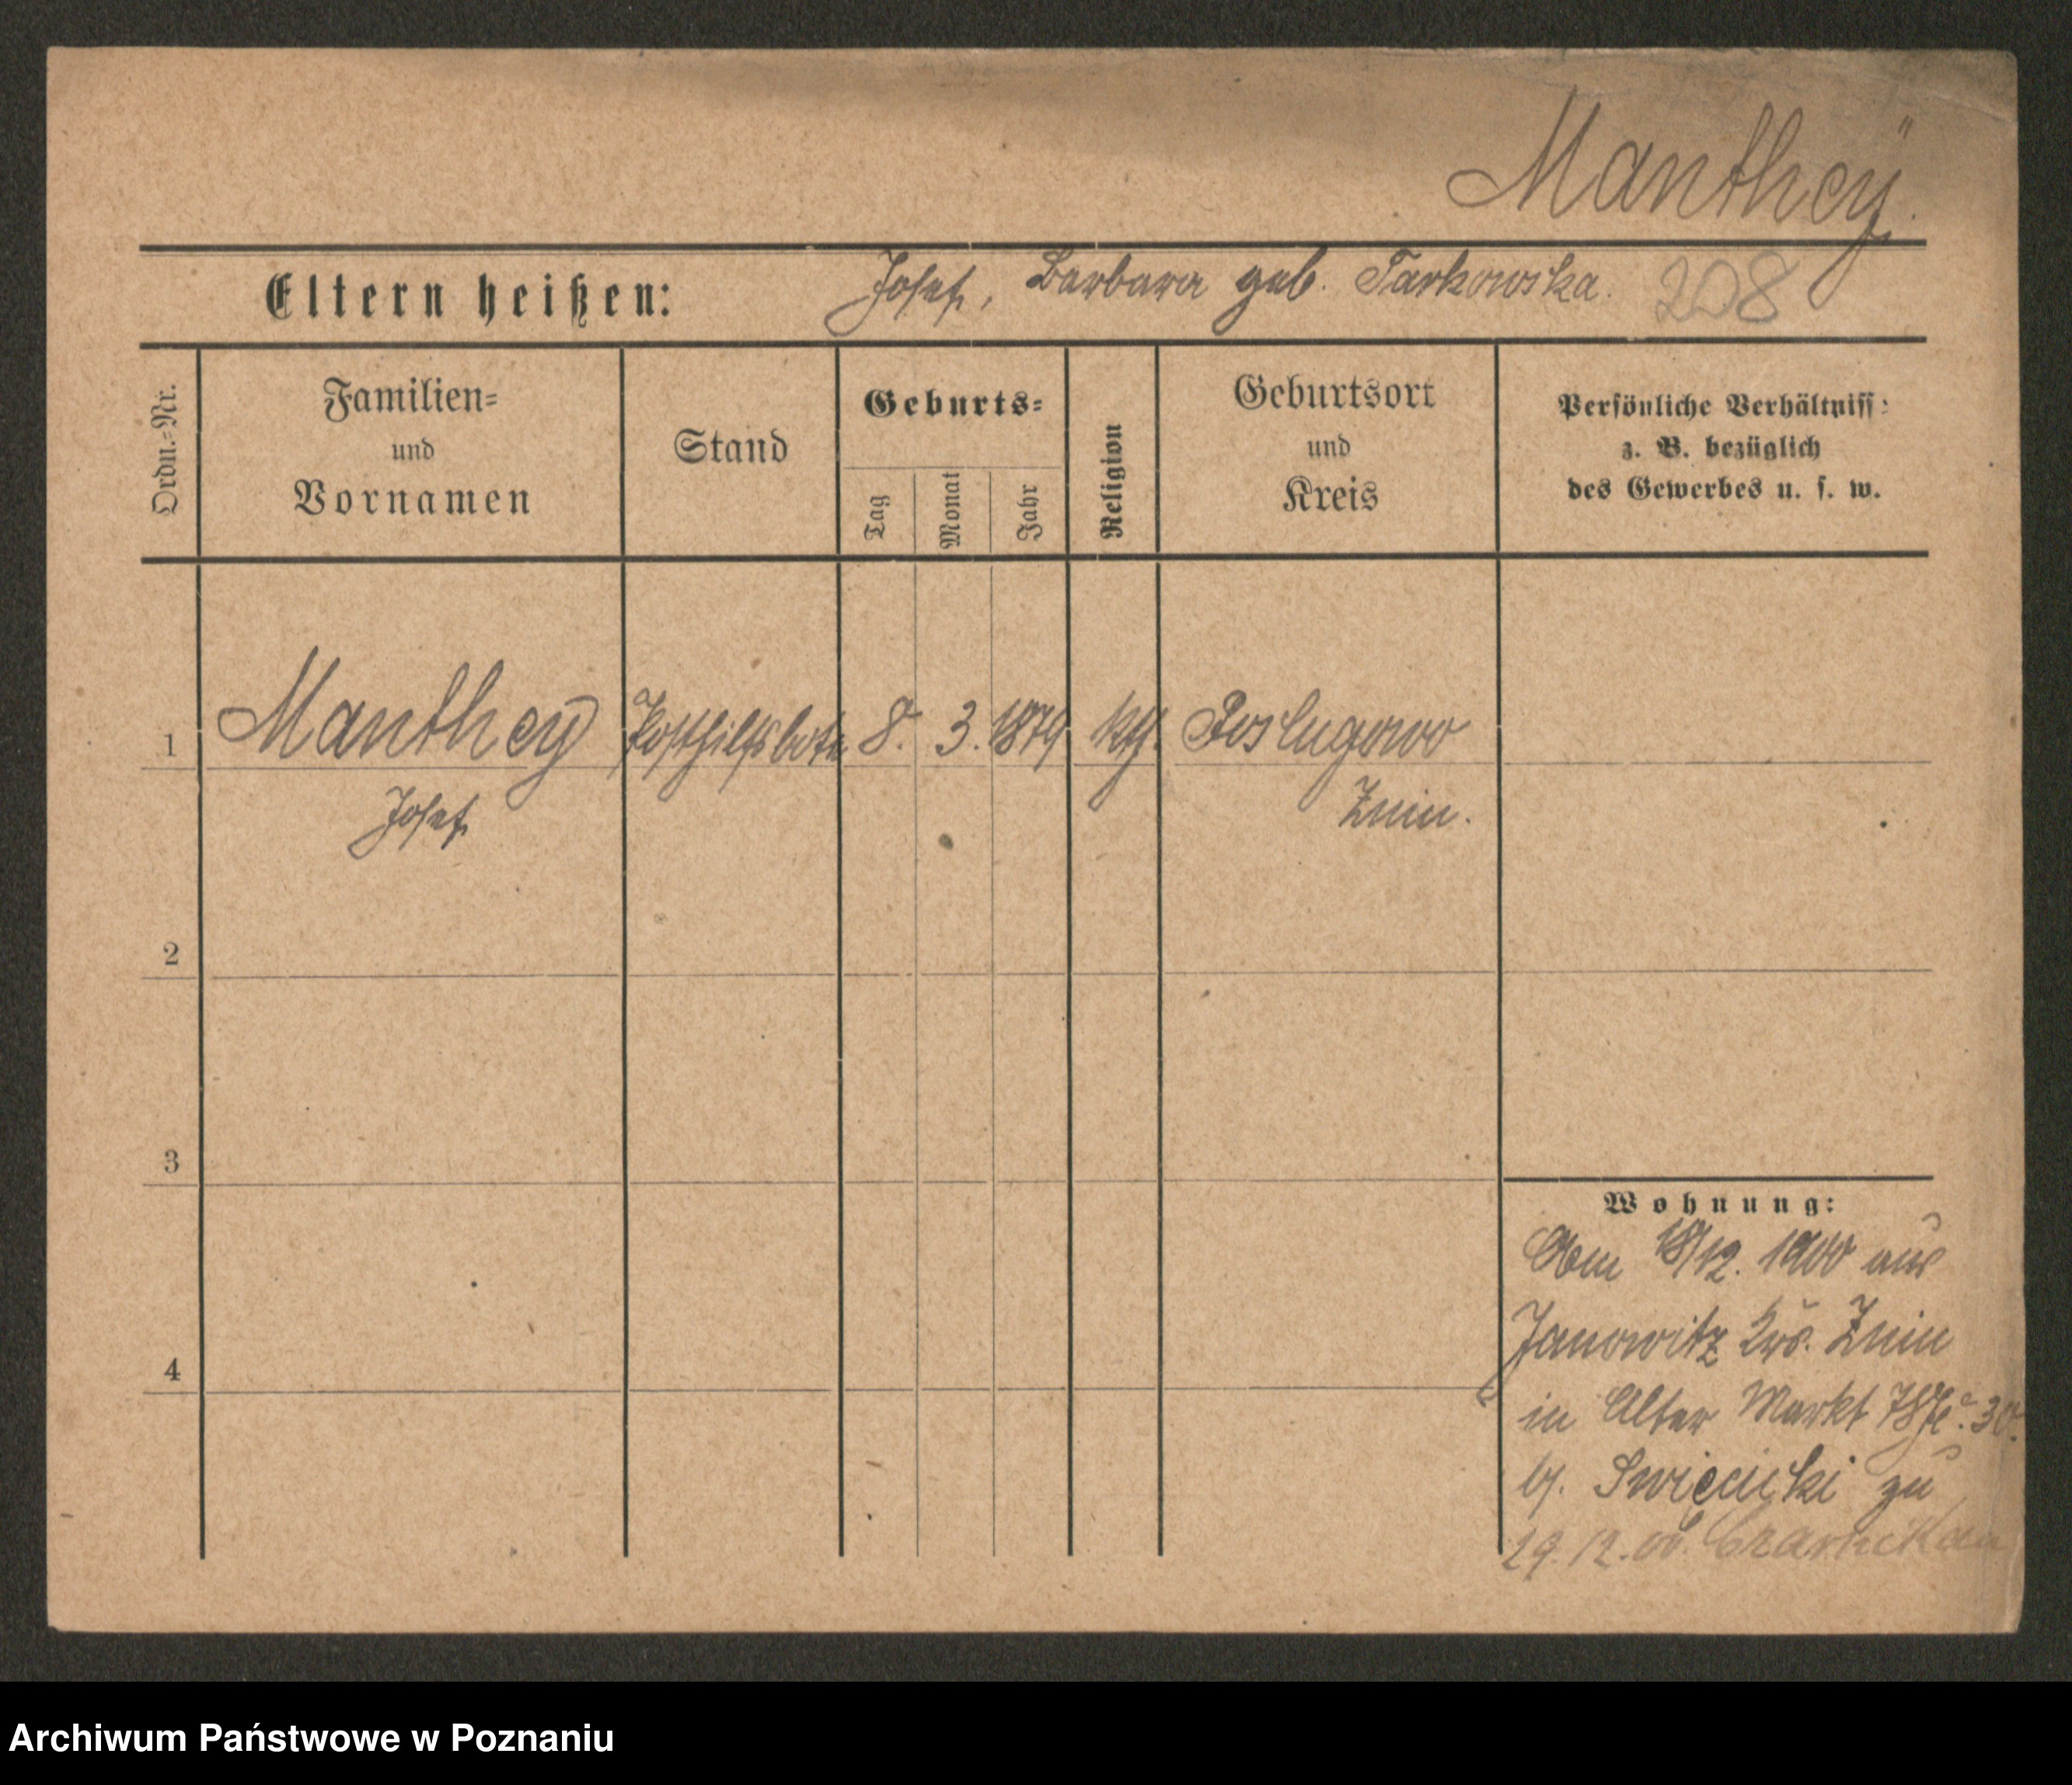 Manthey.
Eltern heißen: Josef, Barbara geb. Tarkowska. 208
Ordn.=Nr.
Familien=
und
Vornamen
Stand
Geburts=
Tag
Monat
Jahr
Religion
Geburtsort
und
Kreis
Persönliche Verhältniss:
z. B. bezüglich
des Gewerbes u. s. w.
1 Manthey Posthilfsbote 8. 3. 1879 kth. Poslugowo
Josef Znin.
2
3
4
Wohnung:
Am 18/12. 1900 aus
Janowitz Krs. Znin
in Alter Markt 78
b/. Swięcicki zu
29.12.00. Czarnikau
Archiwum Państwowe w Poznaniu